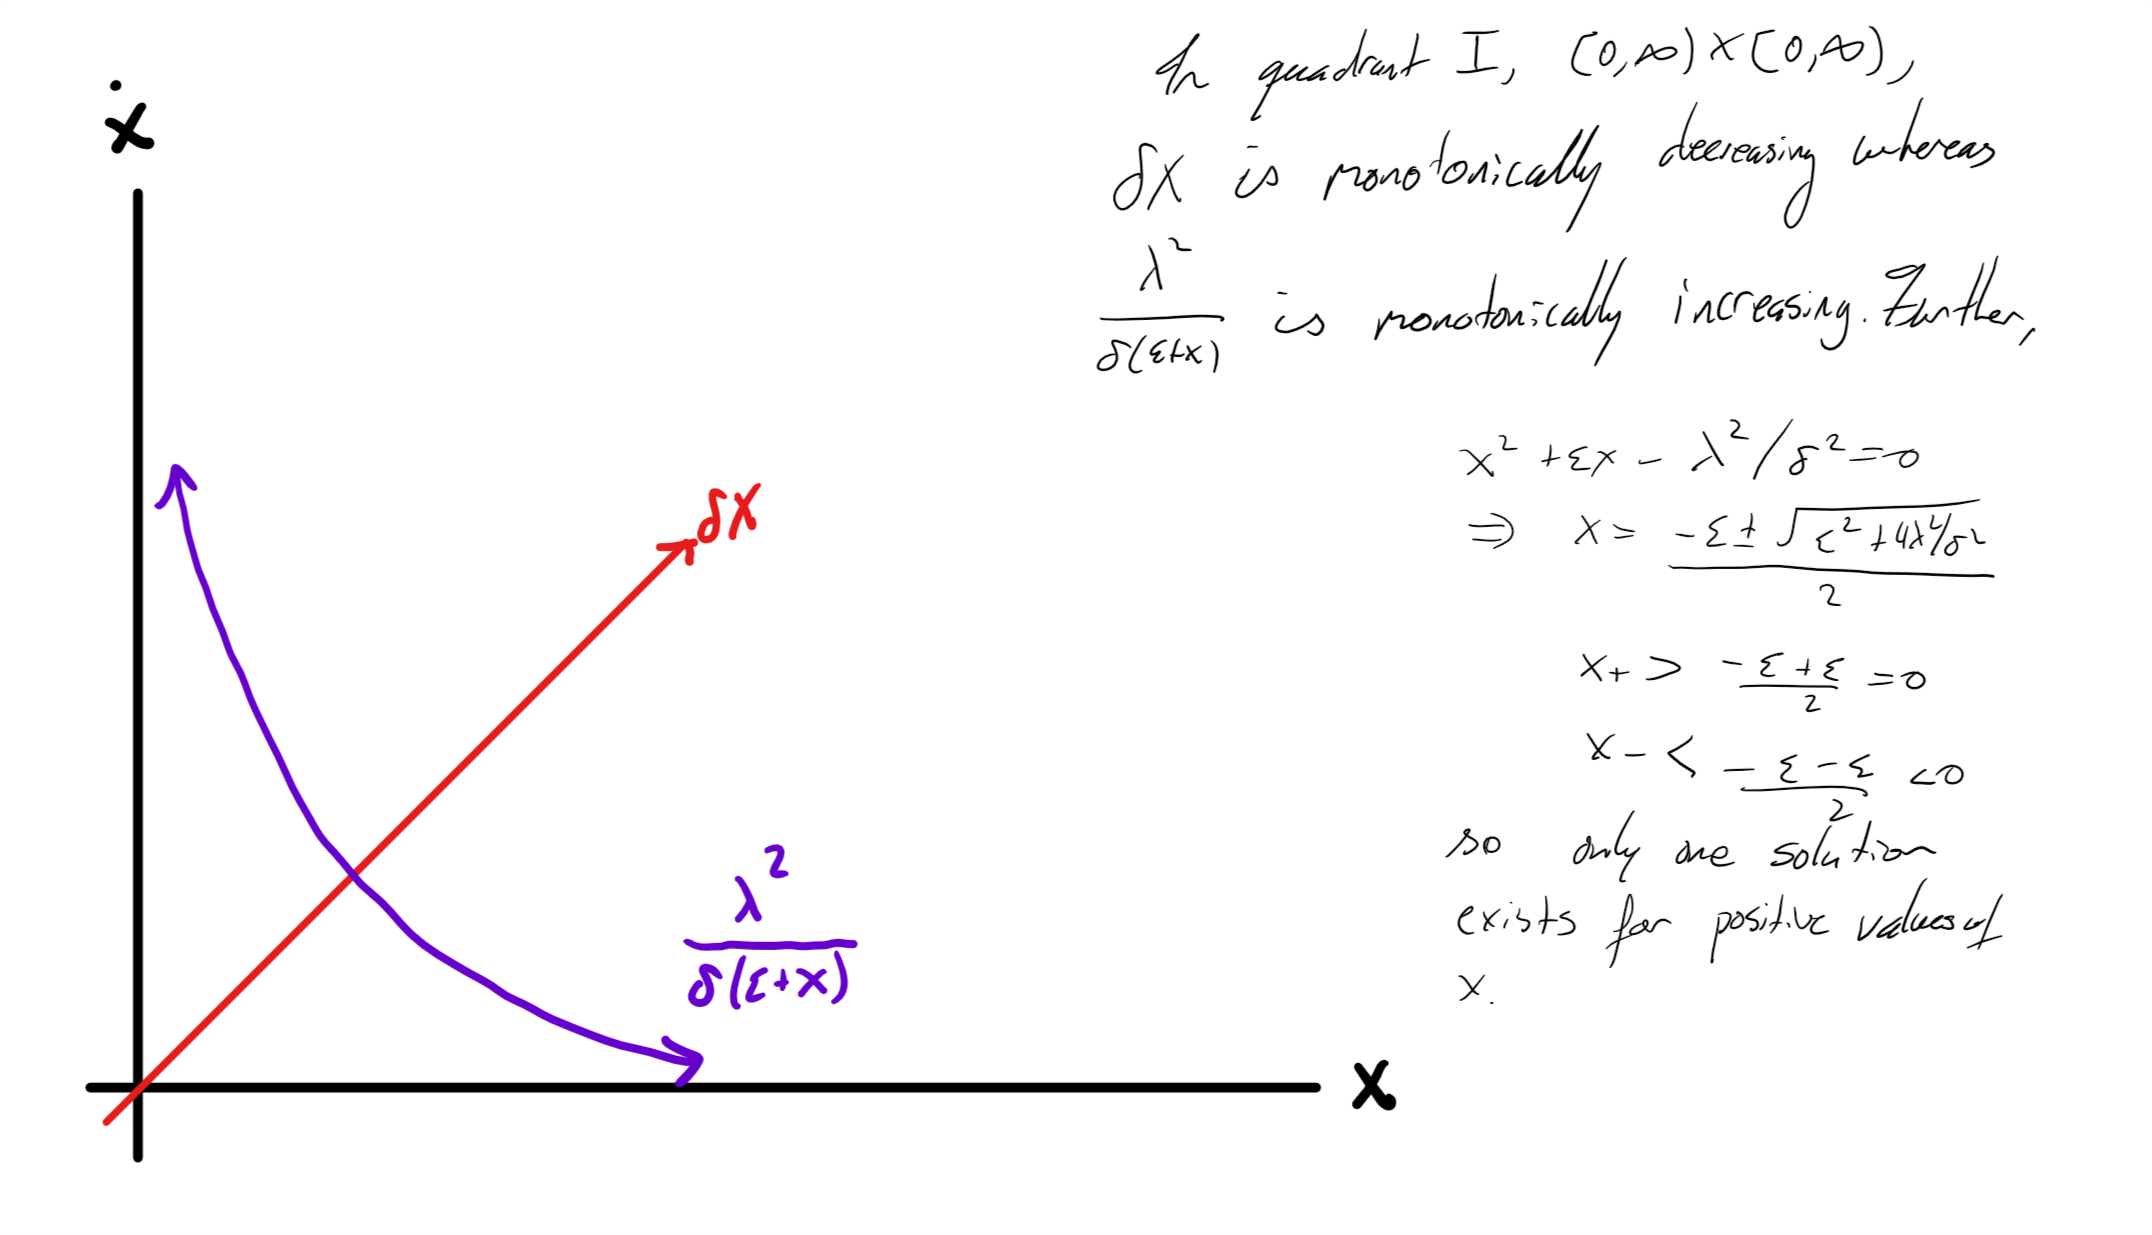 ẋ
δx
λ²
δ(ε+x)
x
In quadrant I, (0,∞)×(0,∞),
δx is monotonically decreasing whereas
λ²
δ(ε+x) is monotonically increasing. Further,
x² + εx - λ²/δ² = 0
⇒ x = -ε ± √ε² + 4λ²/δ²
2
x+ > -ε + ε = 0
2
x- < -ε - ε < 0
2
so only one solution
exists for positive values of
x.